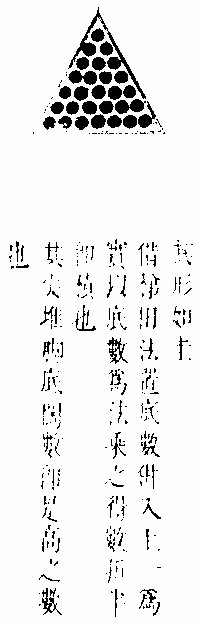 形如圭
借箕田法置底數併入上一爲
實以底數爲法乘之得數折半
即積也
其尖堆脚底闊數即是高之數
也